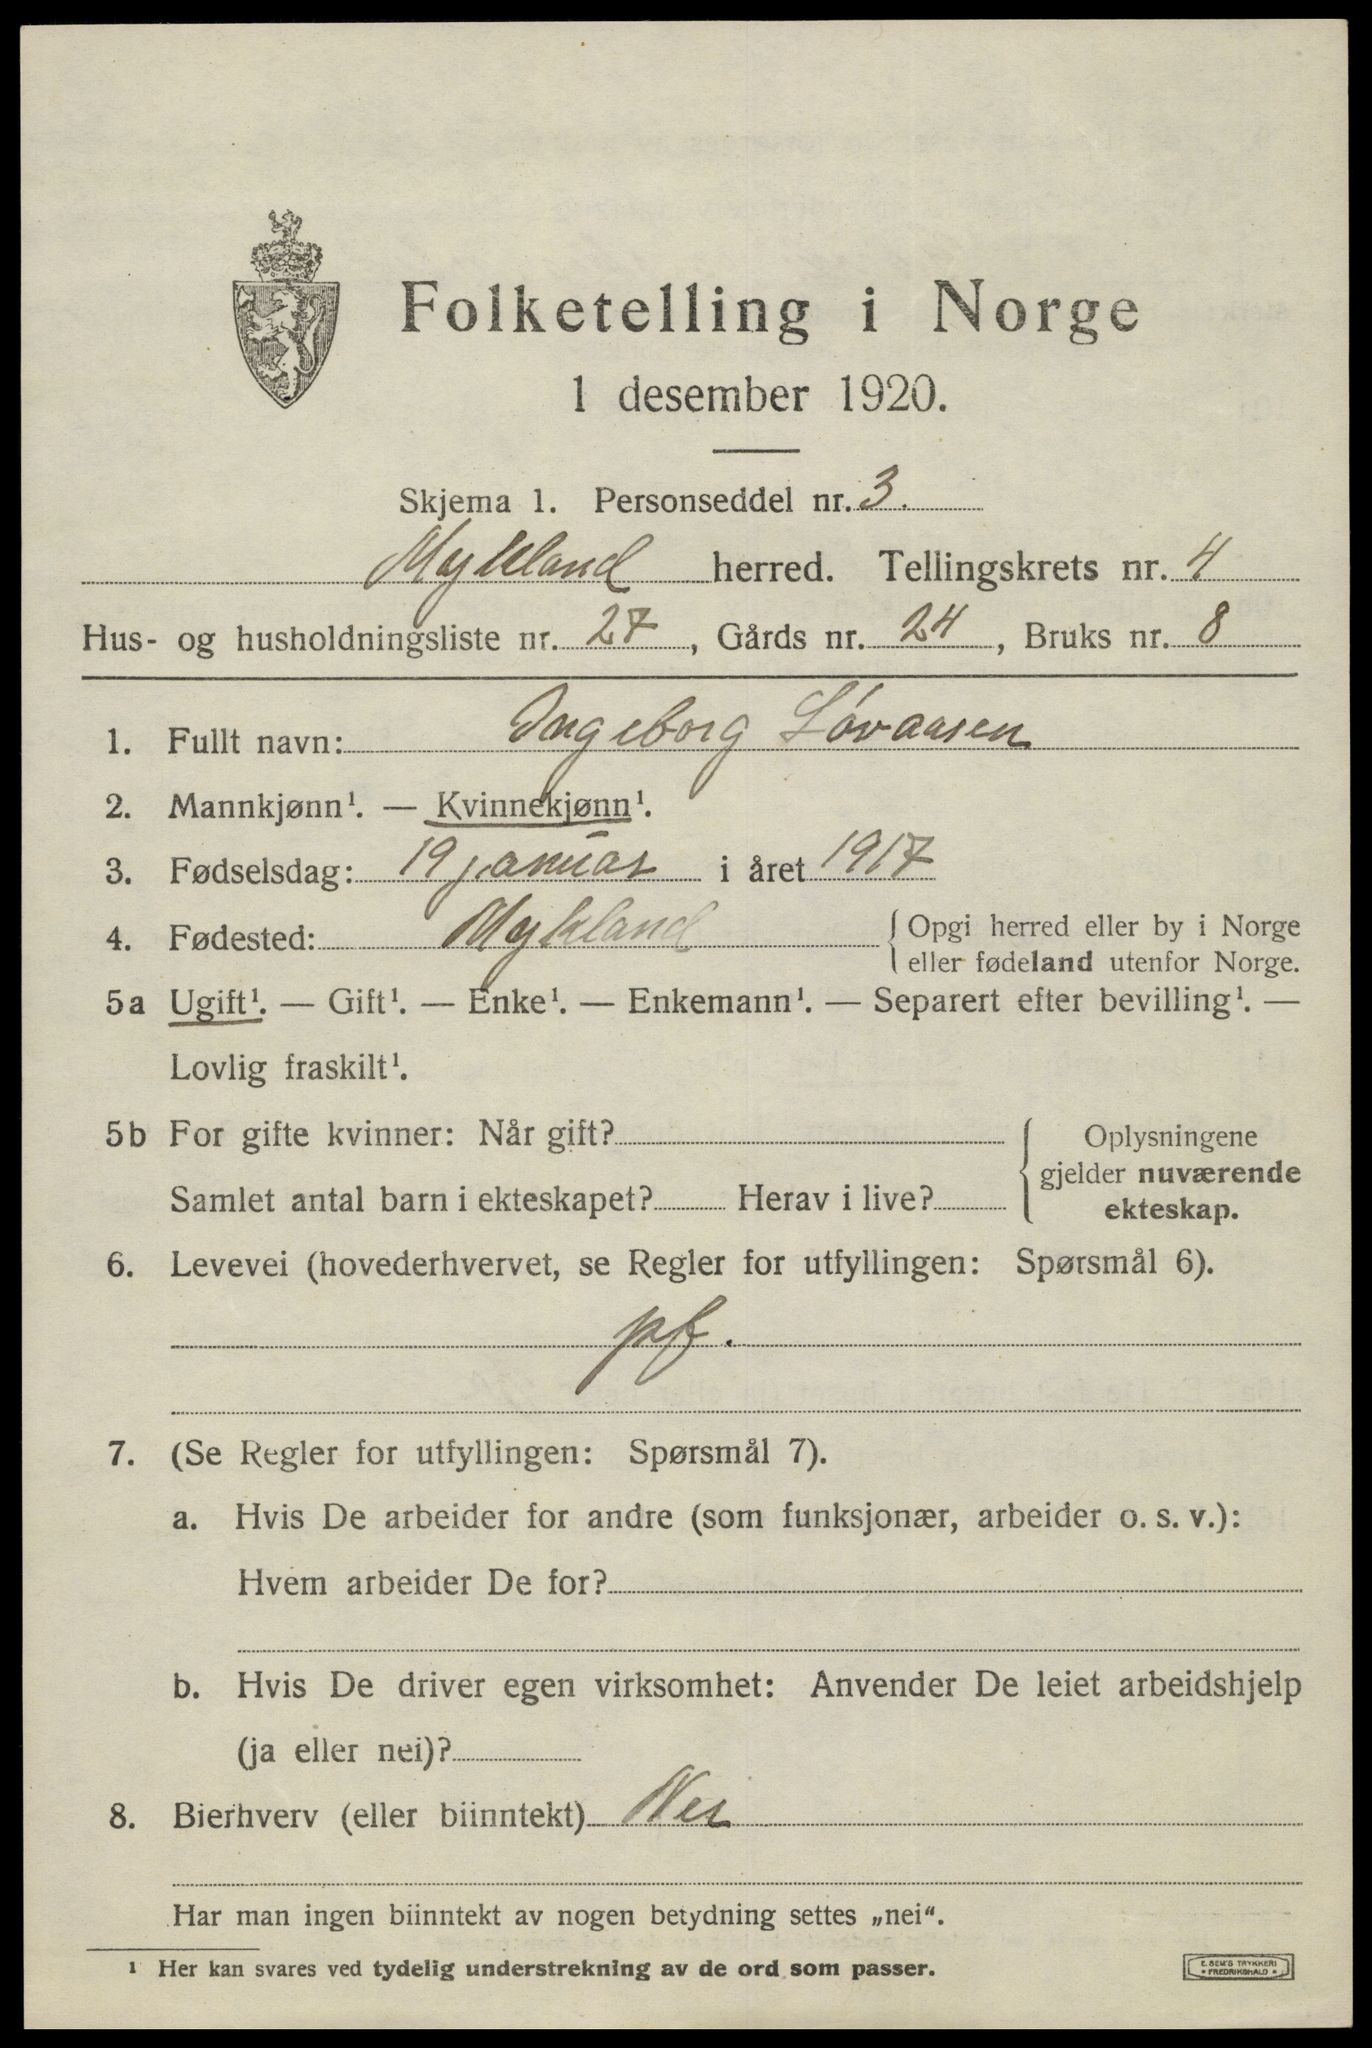 Folketelling i Norge
1 desember 1920.
Skjema 1. Personseddel nr. 3.
Mykland herred. Tellingskrets nr. 4
Hus- og husholdningsliste nr. 27, Gårds nr. 24, Bruks nr. 8
1. Fullt navn: Ingeborg Løvaasen
2. Mannkjønn¹. — Kvinnekjønn¹.
3. Fødselsdag: 19 januar i året 1917
4. Fødested: Mykland { Opgi herred eller by i Norge
eller fødeland utenfor Norge.
5a Ugift¹. — Gift¹. — Enke¹. — Enkemann¹. — Separert efter bevilling¹. —
Lovlig fraskilt¹.
5b For gifte kvinner: Når gift? { Oplysningene
gjelder nuværende
Samlet antal barn i ekteskapet? Herav i live? ekteskap.
6. Levevei (hovederhvervet, se Regler for utfyllingen: Spørsmål 6).
pf.
7. (Se Regler for utfyllingen: Spørsmål 7).
a. Hvis De arbeider for andre (som funksjonær, arbeider o. s. v.):
Hvem arbeider De for?
b. Hvis De driver egen virksomhet: Anvender De leiet arbeidshjelp
(ja eller nei)?
8. Bierhverv (eller biinntekt) Nei
Har man ingen biinntekt av nogen betydning settes „nei“.
¹ Her kan svares ved tydelig understrekning av de ord som passer.
E. SEM'S TRYKKERI
* FREDRIKSHALD *